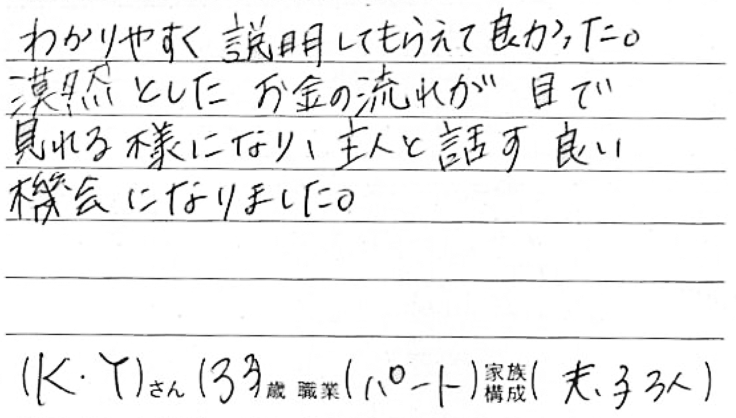 わかりやすく説明してもらえて良かった。
漠然としたお金の流れが目で
見れる様になり、主人と話す良い
機会になりました。
(K・Y)さん (33)歳 職業(パート) 家族構成(夫、子3人)